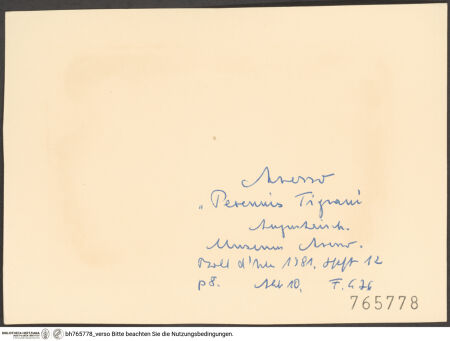 Arezzo
„Perennis Tigrani
Augusteisch.
Museum Arezzo.
Boll d'Arte 1981, Heft 12
p 8. Abb 10, F. G. 76
765778
BIBLIOTHECA HERTZIANA bh765778_verso Bitte beachten Sie die Nutzungsbedingungen.